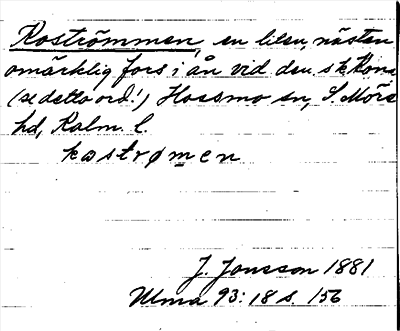 Koströmmen, en liten, nästan
omärklig fors i ån vid den s k Kona
(se detta ord!) Hossmo sn, S. Möre
hd, Kalm. l.
kostrømen
J. Jonsson 1881
Ulma 93:18 s. 156